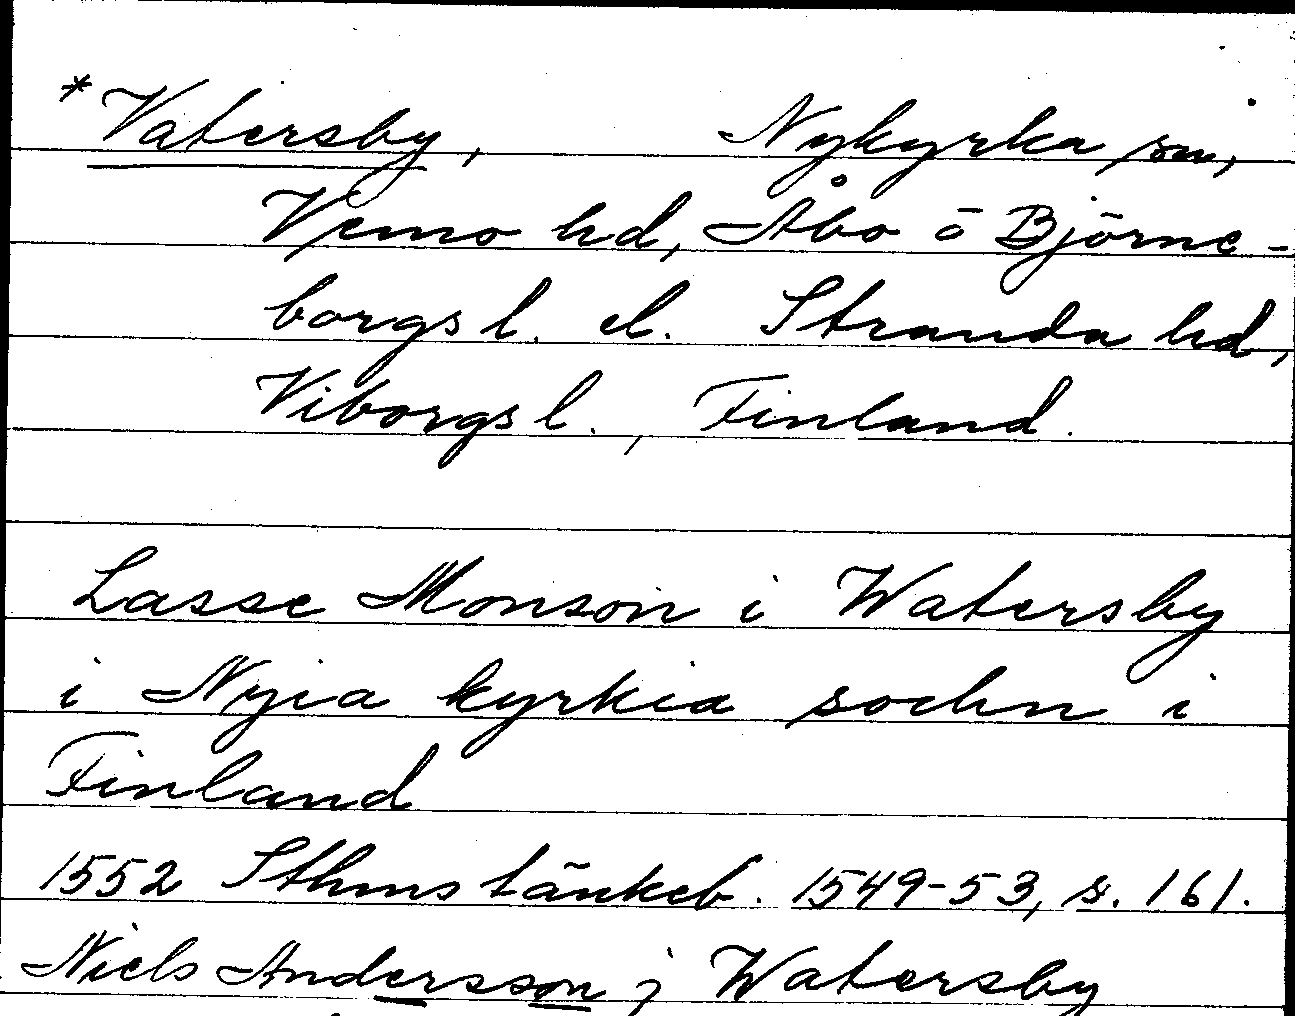 *Vatersby, Nykyrka sn,
Vemo hd, Åbo o Björne-
borgs l. el. Stranda hd,
Viborgs l., Finland.
Lasse Monson i Watersby
i Nyia kyrkia sochn i
Finland
1552 Sthms tänkeb. 1549-53, s. 161.
Niels Andersson j Watersby